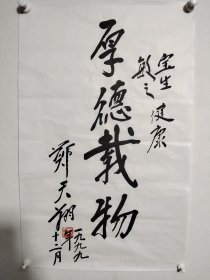 宝生
敏之 健康
厚德载物
郑天翔
一九九九年
十二月